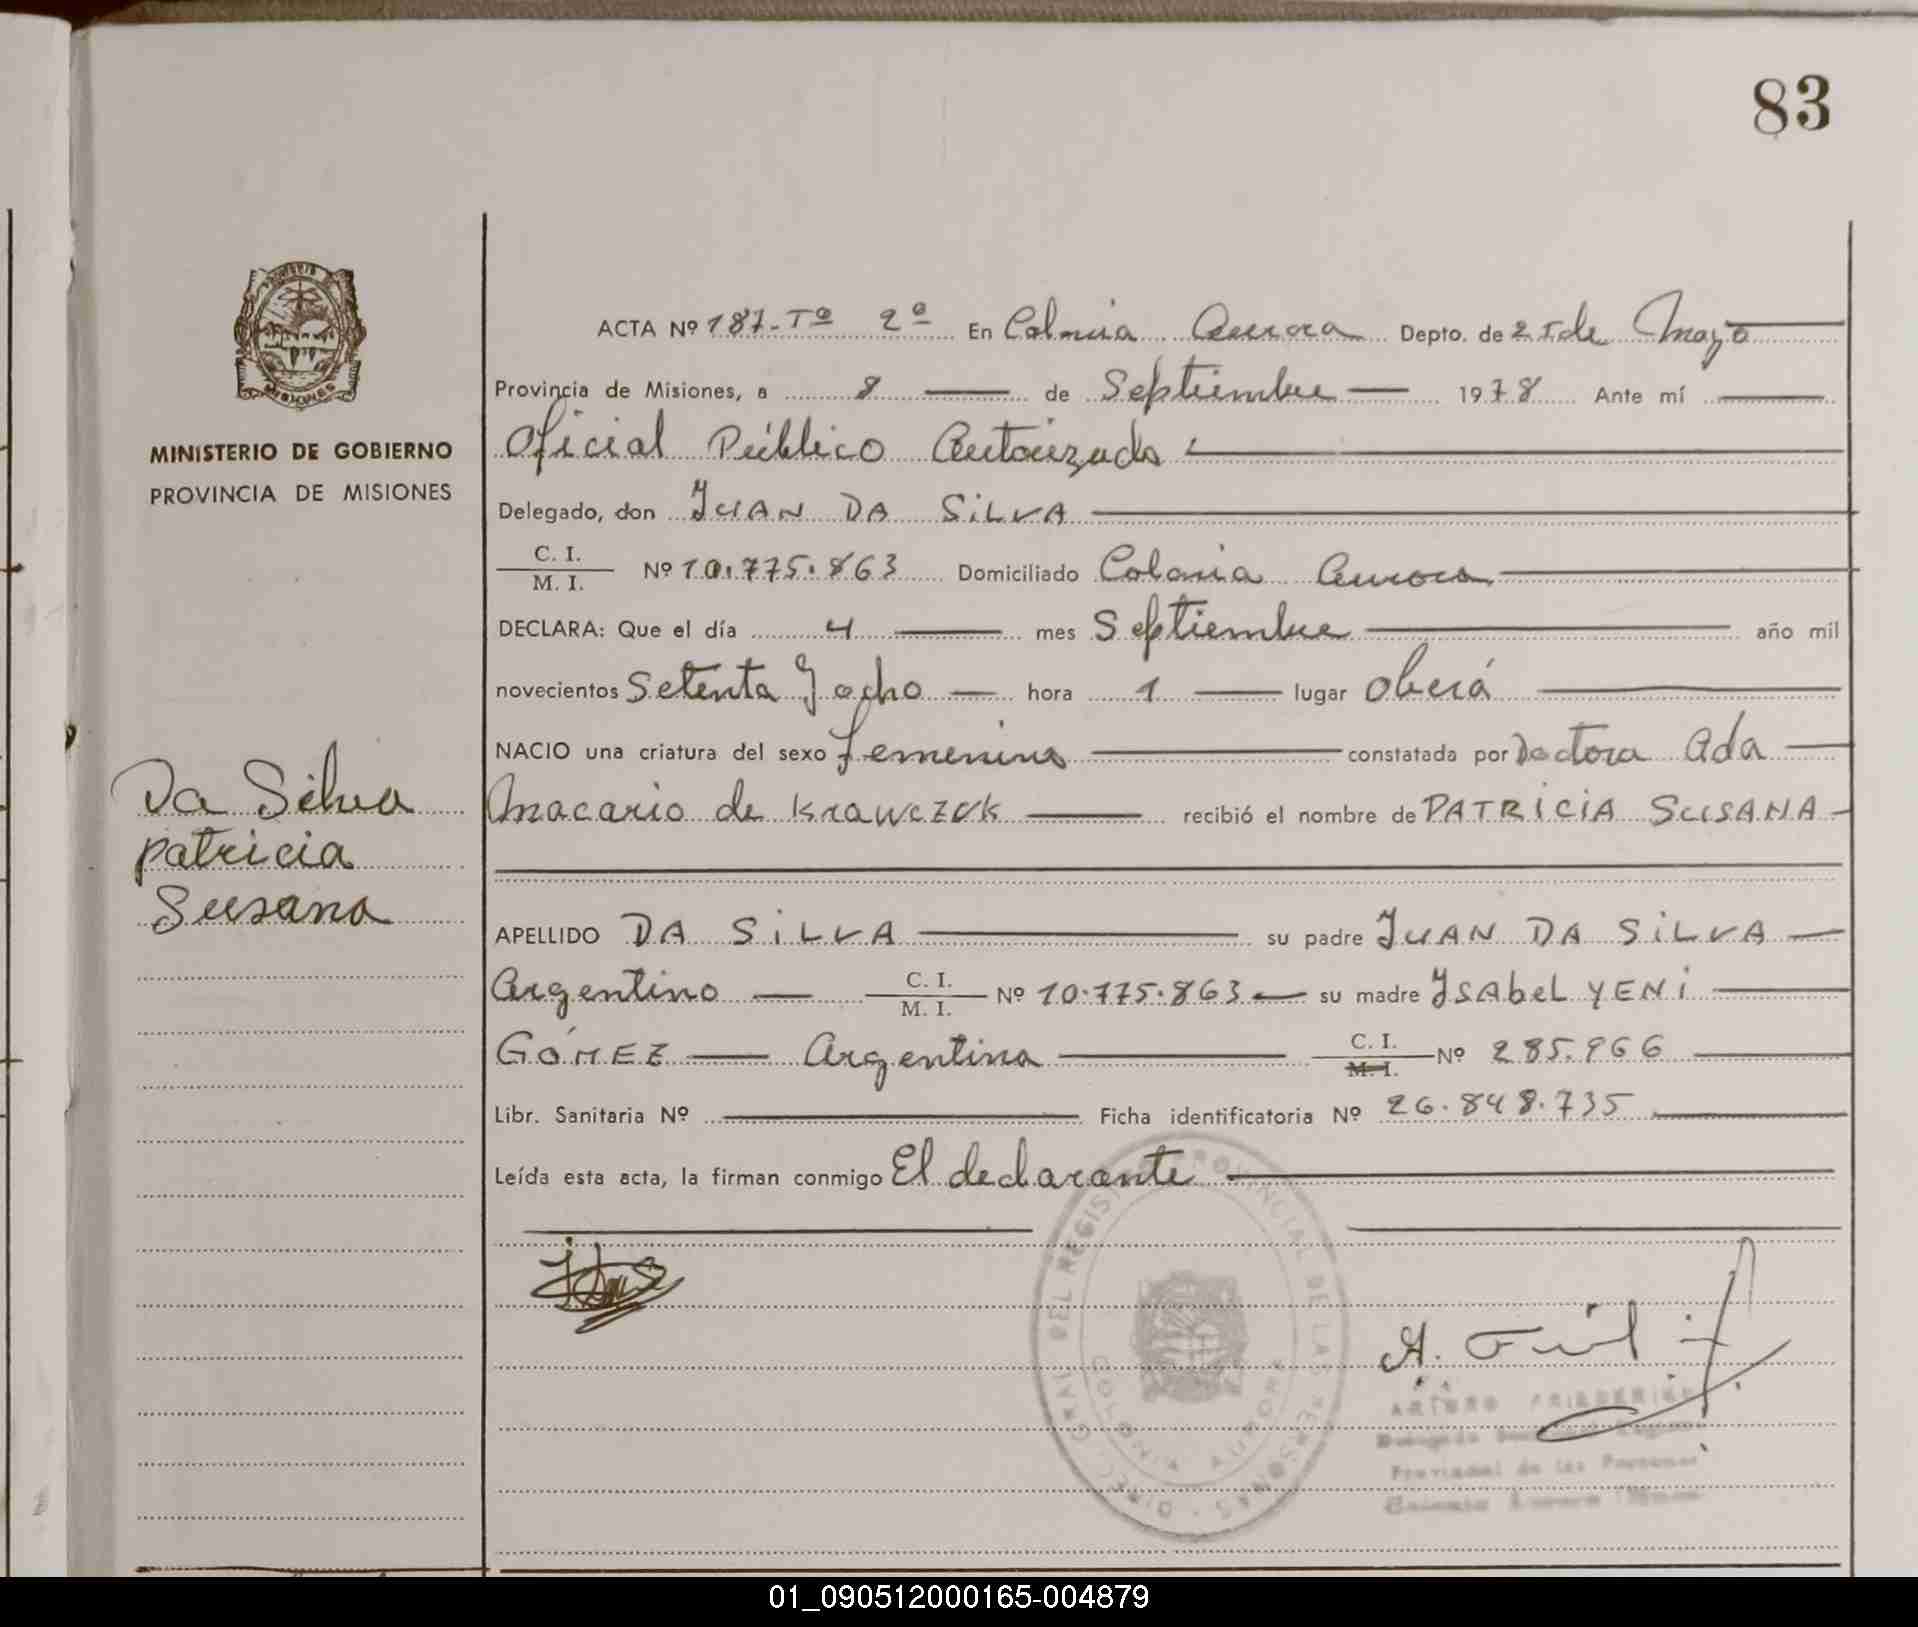 83
ACTA Nº 187-Tº 2º En Colonia Aurora Depto. de 25 de Mayo
Provincia de Misiones, a 8 de Septiembre 1978 Ante mí
MINISTERIO DE GOBIERNO
PROVINCIA DE MISIONES
Oficial Público Autorizado
Delegado, don JUAN DA SiLVA
C. I.
M. I.
Nº 10.775.863 Domiciliado Colonia Aurora
DECLARA: Que el día 4 mes Septiembre año mil
novecientos Setenta y ocho hora 1 lugar Oberá
NACIO una criatura del sexo femenino constatada por Doctora Ada
Macario de KrawczUK recibió el nombre de PATRiCiA SUSANA
Da Silva
patricia
Susana
APELLIDO DA SiLVA su padre JUAN DA SiLVA
Argentino C. I. M. I. Nº 10.775.863 su madre YSAbeL YENi
GÓMEZ Argentina C. I. M. I. Nº 285.966
Libr. Sanitaria Nº Ficha identificatoria Nº 26.848.735
Leída esta acta, la firman conmigo El declarante
DIREC. GRAL DEL REGISTRO PROVINCIAL DE LAS PERSONAS
COLONIA AURORA
ARTURO
Provincial de las Personas
Colonia Aurora
01_090512000165-004879